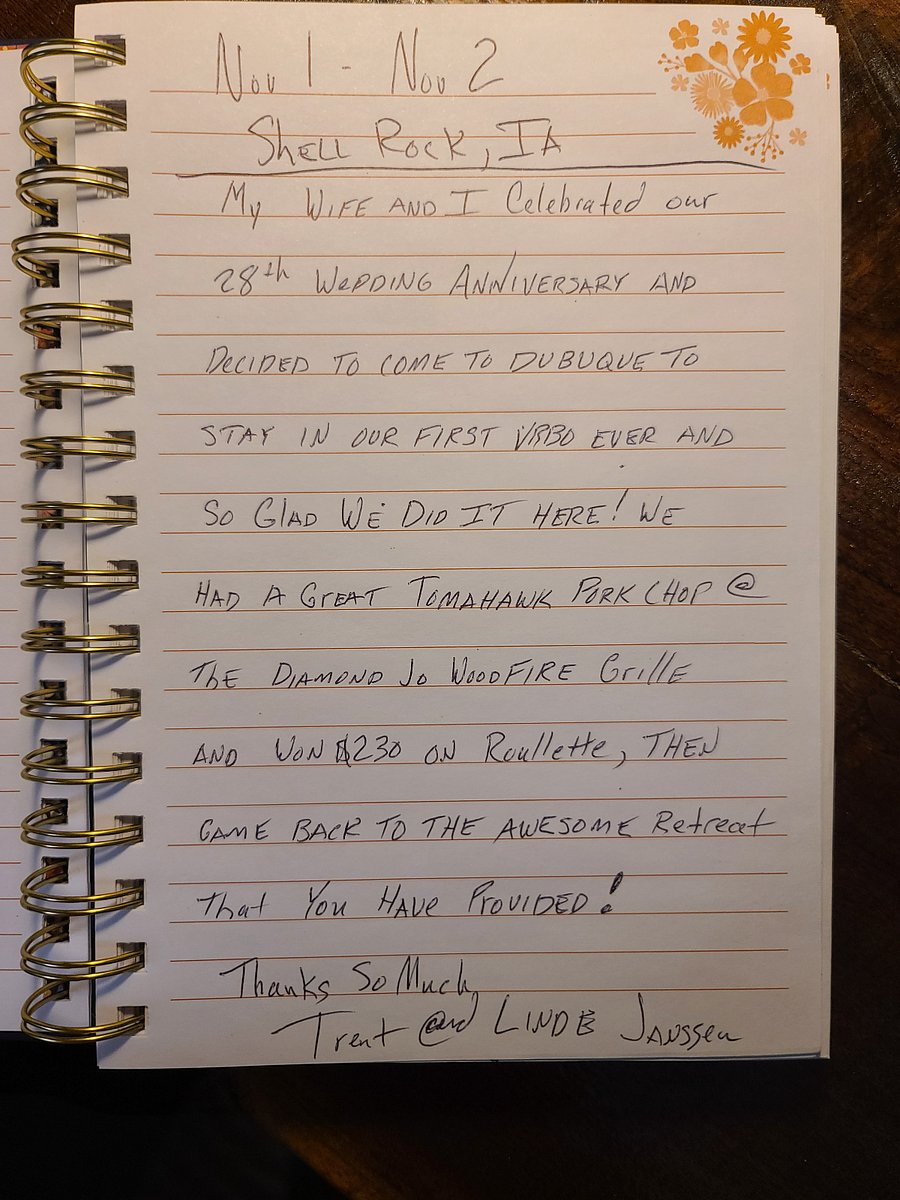 Nov 1 - Nov 2
Shell Rock, IA
My Wife and I Celebrated our
28th Wedding Anniversary and
Decided to come to Dubuque to
stay in our first VRBO ever and
So Glad We Did It Here! We
Had a Great Tomahawk Pork Chop @
The Diamond Jo Woodfire Grille
and won $230 on Roullette, then
came back to the awesome Retreat
That You Have Provided!
Thanks So Much,
Trent and Linde Janssen